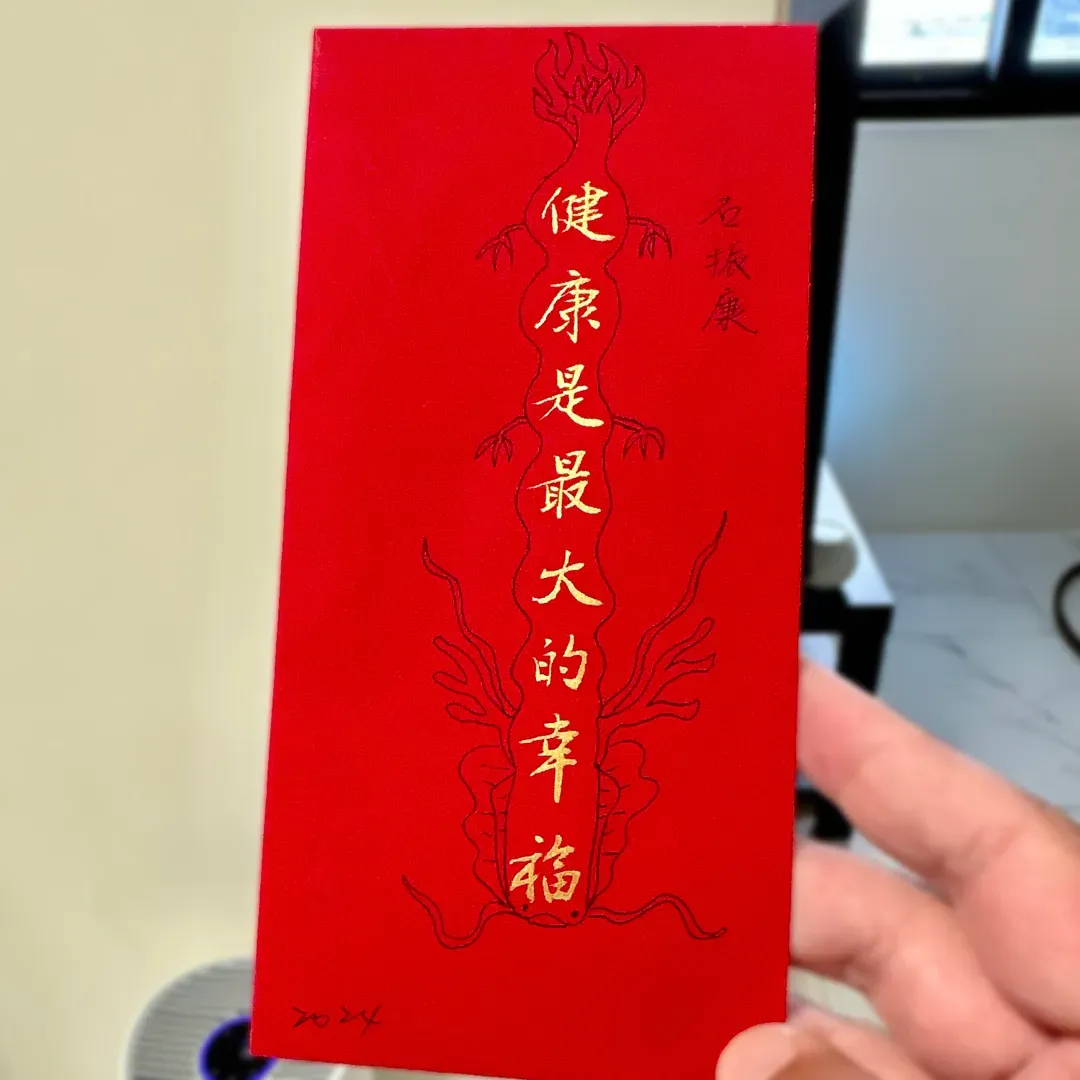 石振康
健康是最大的幸福
2024